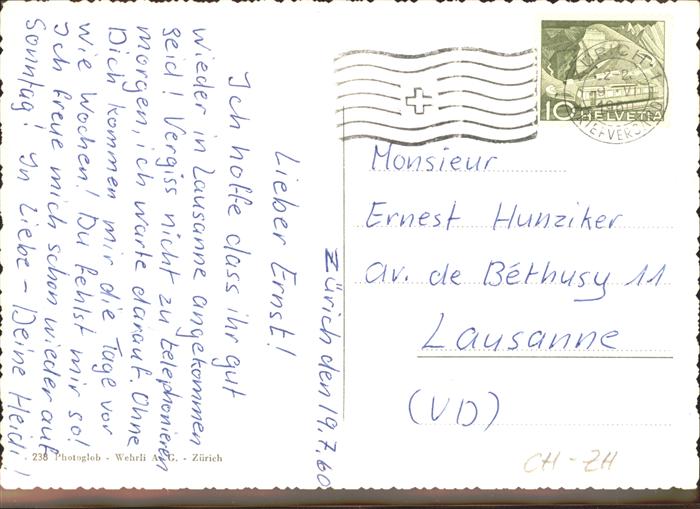 Zürich den 19.7.60
Lieber Ernst!
Ich hoffe dass ihr gut
wieder in Lausanne angekommen
seid! Vergiss nicht zu telephonieren
morgen, ich warte darauf. Ohne
Dich kommen mir die Tage vor
wie Wochen! Du fehlst mir so!
Ich freue mich schon wieder auf
Sonntag! In Liebe - Deine Heidi!
238 Photoglob - Wehrli A. G. - Zürich
10 HELVETIA
ZÜRICH 1
BRIEFVERSAND
Monsieur
Ernest Hunziker
av. de Béthusy 11
Lausanne
(VD)
CH-ZH